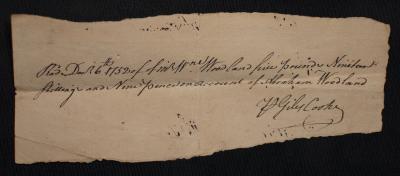 Recd. Decr. 6th 1752 of Mr. Wm. Woodland five pounds Nineteen
Shillings and Nine pence on account of Abraham Woodland
Pr Giles Cooke